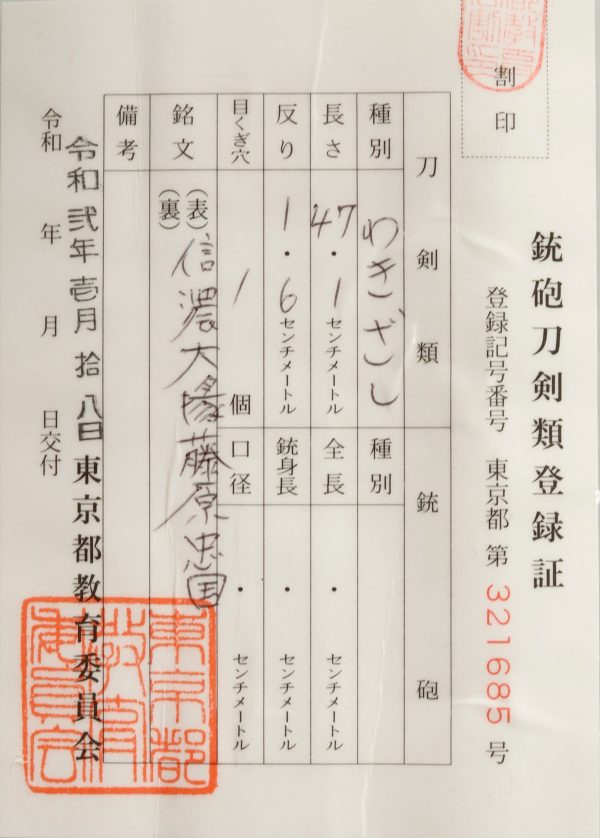 割印
銃砲刀剣類登録証
登録記号番号 東京都 第 321685 号
刀剣類 銃砲
種別 わきざし 種別
長さ 47・1センチメートル 全長 ・ センチメートル
反り 1・6センチメートル 銃身長 ・ センチメートル
目くぎ穴 1個 口径 ・ センチメートル
銘文 (表) 信濃大掾藤原忠国
(裏)
備考
令和 年 月 日交付
令和弐年壱月拾八日
東京都教育委員会
東京都教育委員会